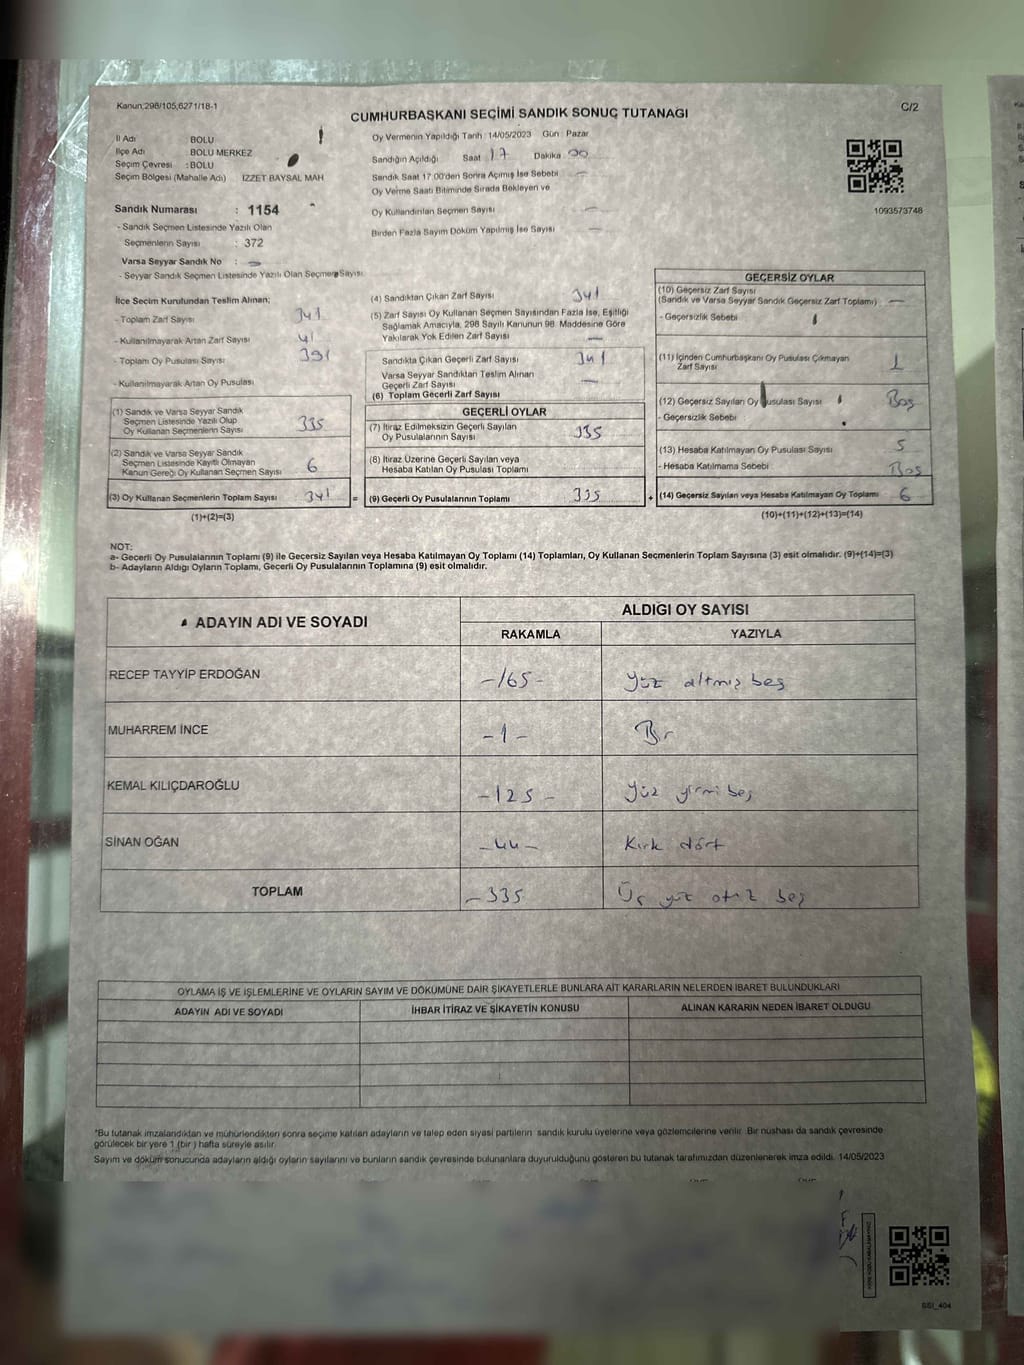 Kanun;298/105,6271/18-1
C/2
CUMHURBAŞKANI SEÇİMİ SANDIK SONUÇ TUTANAĞI
İl Adı BOLU
İlçe Adı BOLU MERKEZ
Seçim Çevresi : BOLU
Seçim Bölgesi (Mahalle Adı) IZZET BAYSAL MAH
Sandık Numarası : 1154
- Sandık Seçmen Listesinde Yazılı Olan
Seçmenlerin Sayısı : 372
Varsa Seyyar Sandık No : -
- Seyyar Sandık Seçmen Listesinde Yazılı Olan Seçmen Sayısı
Oy Vermenin Yapıldığı Tarih 14/05/2023 Gün Pazar
Sandığın Açıldığı Saat 17 Dakika 00
Sandık Saat 17.00'den Sonra Açılmış İse Sebebi -
Oy Verme Saati Bitiminde Sırada Bekleyen ve
Oy Kullandırılan Seçmen Sayısı -
Birden Fazla Sayım Döküm Yapılmış İse Sayısı -
1093573748
İlçe Seçim Kurulundan Teslim Alınan;
- Toplam Zarf Sayısı
- Kullanılmayarak Artan Zarf Sayısı
- Toplam Oy Pusulası Sayısı 391
- Kullanılmayarak Artan Oy Pusulası
(1) Sandık ve Varsa Seyyar Sandık
Seçmen Listesinde Yazılı Olup
Oy Kullanan Seçmenlerin Sayısı 335
(2) Sandık ve Varsa Seyyar Sandık
Seçmen Listesinde Kayıtlı Olmayan
Kanun Gereği Oy Kullanan Seçmen Sayısı 6
(3) Oy Kullanan Seçmenlerin Toplam Sayısı 341
(1)+(2)=(3)
(4) Sandıktan Çıkan Zarf Sayısı 341
(5) Zarf Sayısı Oy Kullanan Seçmen Sayısından Fazla İse, Eşitliği
Sağlamak Amacıyla, 298 Sayılı Kanunun 98. Maddesine Göre
Yakılarak Yok Edilen Zarf Sayısı -
Sandıkta Çıkan Geçerli Zarf Sayısı 341
Varsa Seyyar Sandıktan Teslim Alınan
Geçerli Zarf Sayısı -
(6) Toplam Geçerli Zarf Sayısı
GEÇERLİ OYLAR
(7) İtiraz Edilmeksizin Geçerli Sayılan
Oy Pusulalarının Sayısı 335
(8) İtiraz Üzerine Geçerli Sayılan veya
Hesaba Katılan Oy Pusulası Toplamı
= (9) Geçerli Oy Pusulalarının Toplamı 335
GEÇERSİZ OYLAR
(10) Geçersiz Zarf Sayısı
(Sandık ve Varsa Seyyar Sandık Geçersiz Zarf Toplamı) -
- Geçersizlik Sebebi
(11) İçinden Cumhurbaşkanı Oy Pusulası Çıkmayan
Zarf Sayısı 1
(12) Geçersiz Sayılan Oy Pusulası Sayısı Boş
- Geçersizlik Sebebi
(13) Hesaba Katılmayan Oy Pusulası Sayısı 5
- Hesaba Katılmama Sebebi Boş
+ (14) Geçersiz Sayılan veya Hesaba Katılmayan Oy Toplamı 6
(10)+(11)+(12)+(13)=(14)
NOT:
a- Geçerli Oy Pusulalarının Toplamı (9) ile Geçersiz Sayılan veya Hesaba Katılmayan Oy Toplamı (14) Toplamları, Oy Kullanan Seçmenlerin Toplam Sayısına (3) eşit olmalıdır. (9)+(14)=(3)
b- Adayların Aldığı Oyların Toplamı, Geçerli Oy Pusulalarının Toplamına (9) eşit olmalıdır.
ADAYIN ADI VE SOYADI ALDIĞI OY SAYISI
RAKAMLA YAZIYLA
RECEP TAYYİP ERDOĞAN -165- Yüz altmış beş
MUHARREM İNCE -1- Bir
KEMAL KILIÇDAROĞLU -125- Yüz yirmi beş
SİNAN OĞAN -44- Kırk dört
TOPLAM -335 Üç yüz otuz beş
OYLAMA İŞ VE İŞLEMLERİNE VE OYLARIN SAYIM VE DÖKÜMÜNE DAİR ŞİKAYETLERLE BUNLARA AİT KARARLARIN NELERDEN İBARET BULUNDUKLARI
ADAYIN ADI VE SOYADI İHBAR İTİRAZ VE ŞİKAYETİN KONUSU ALINAN KARARIN NEDEN İBARET OLDUĞU
*Bu tutanak imzalandıktan ve mühürlendikten sonra seçime katılan adayların ve talep eden siyasi partilerin sandık kurulu üyelerine veya gözlemcilerine verilir. Bir nüshası da sandık çevresinde
görülecek bir yere 1 (bir) hafta süreyle asılır.
Sayım ve döküm sonucunda adayların aldığı oyların sayılarını ve bunların sandık çevresinde bulunanlara duyurulduğunu gösteren bu tutanak tarafımızdan düzenlenerek imza edildi. 14/05/2023
SSI_404